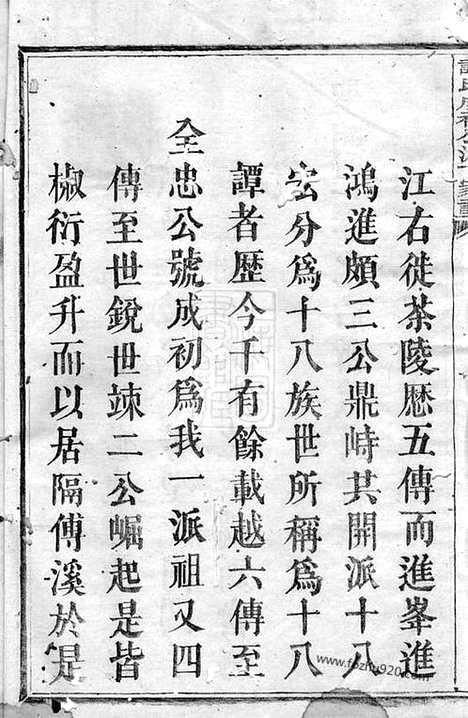 江右徙茶陵歷五傳而進峯進
鴻進頗三公鼎峙共開派十八
宏分爲十八族世所稱爲十八
譚者歷今千有餘載越六傳至
全忠公號成初爲我一派祖又四
傳至世銳世竦二公崛起是皆
椒衍盈升而以居隔傅溪於是
www.fozhu920.com